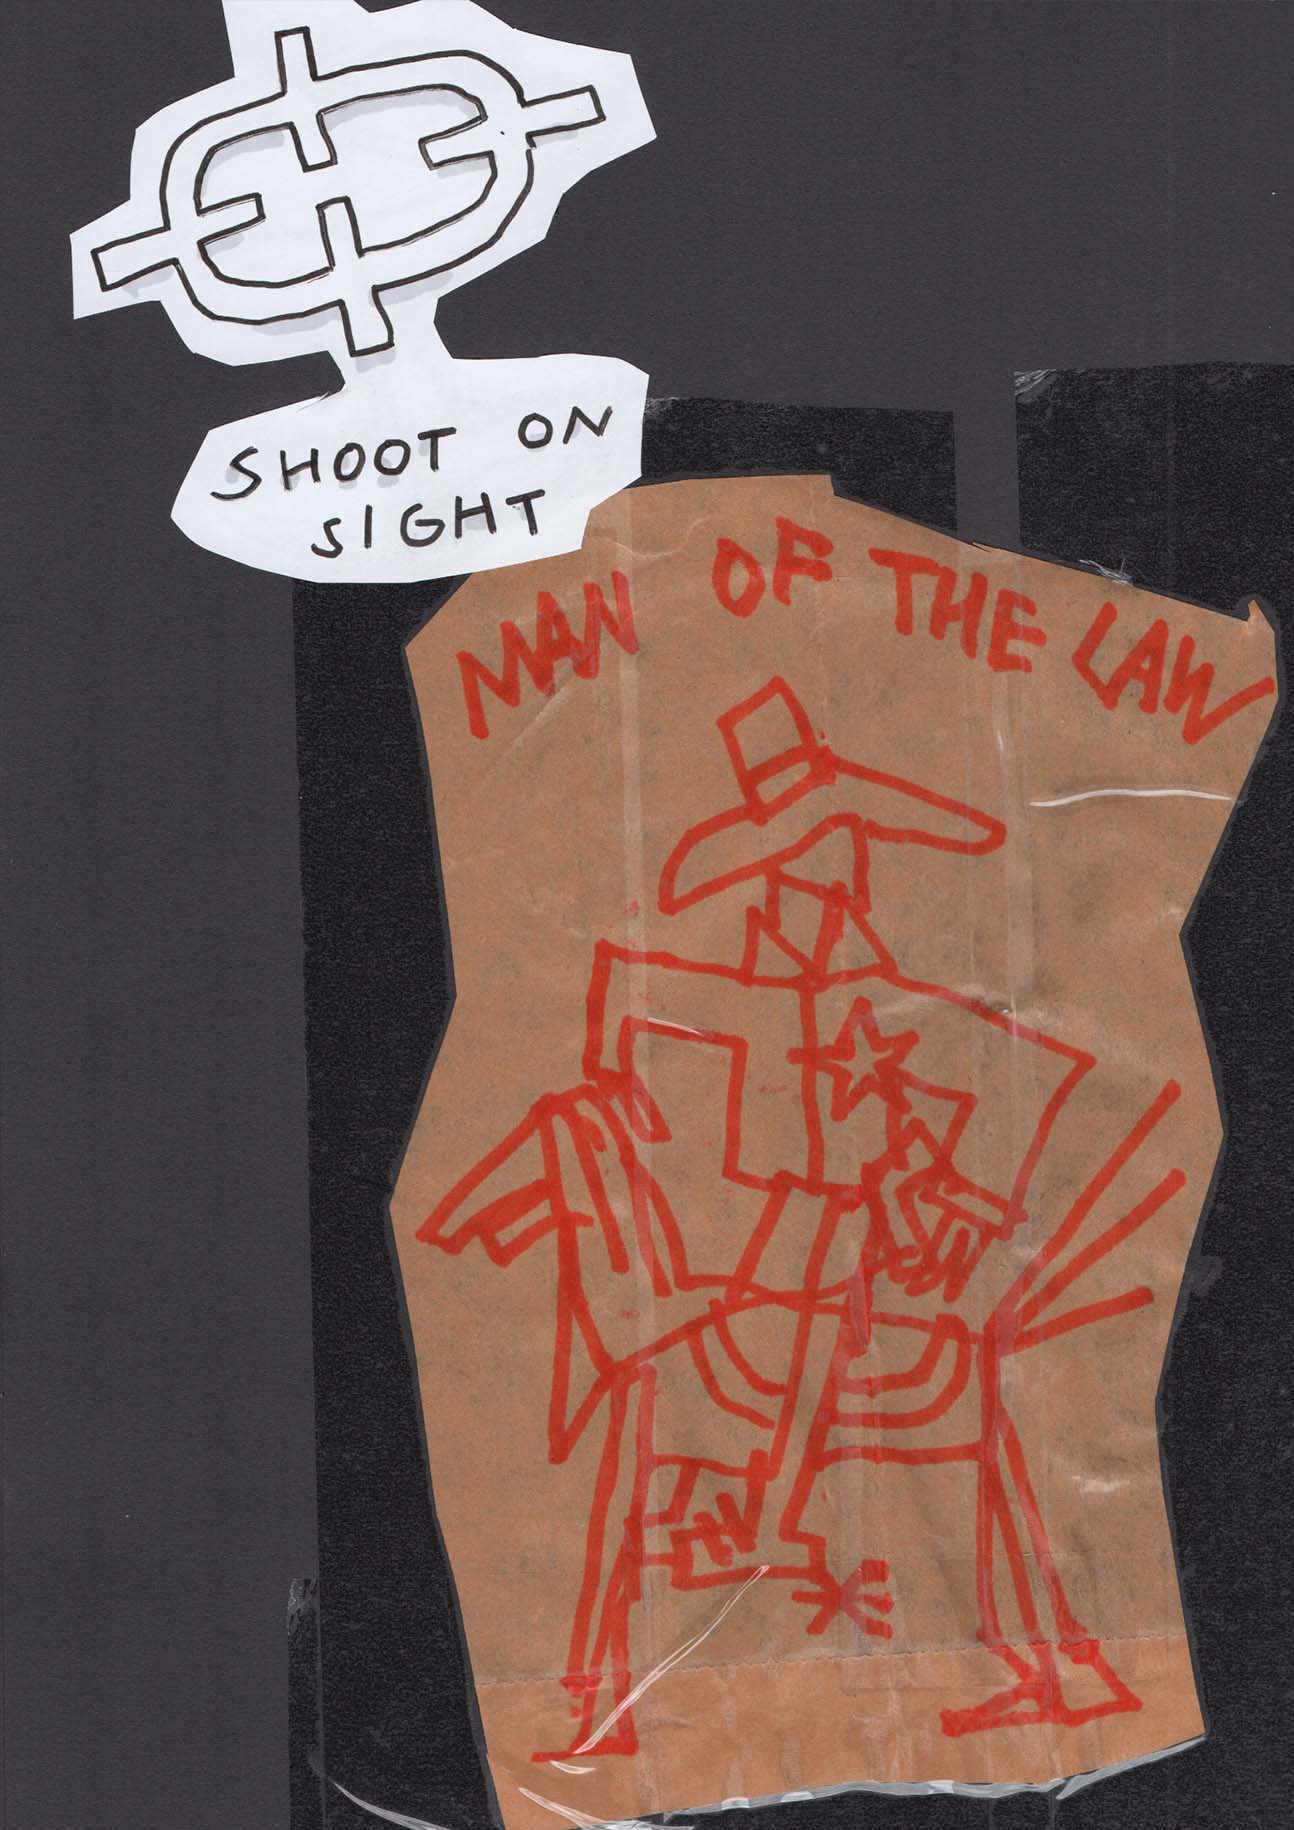 SHOOT ON
SIGHT
MAN OF THE LAW